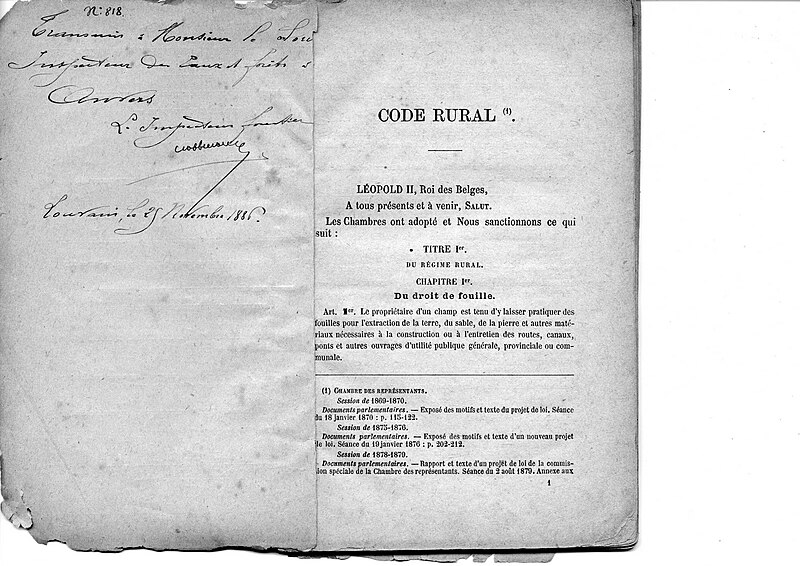 N° 818
Transmis à Monsieur le Sous
Inspecteur des Eaux et forêts à
Anvers
L'Inspecteur forestier
Louvain, le 25 Novembre 1886.
CODE RURAL (1).
LÉOPOLD II, Roi des Belges,
A tous présents et à venir, SALUT.
Les Chambres ont adopté et Nous sanctionnons ce qui
suit :
TITRE Ier.
DU RÉGIME RURAL.
CHAPITRE Ier.
Du droit de fouille.
Art. 1er. Le propriétaire d'un champ est tenu d'y laisser pratiquer des
fouilles pour l'extraction de la terre, du sable, de la pierre et autres maté-
riaux nécessaires à la construction ou à l'entretien des routes, canaux,
ponts et autres ouvrages d'utilité publique générale, provinciale ou com-
munale.
(1) CHAMBRE DES REPRÉSENTANTS.
Session de 1869-1870.
Documents parlementaires. — Exposé des motifs et texte du projet de loi. Séance
du 18 janvier 1870 : p. 115-122.
Session de 1875-1876.
Documents parlementaires. — Exposé des motifs et texte d'un nouveau projet
de loi. Séance du 19 janvier 1876 : p. 202-212.
Session de 1878-1879.
Documents parlementaires. — Rapport et texte d'un projet de loi de la commis-
sion spéciale de la Chambre des représentants. Séance du 2 août 1879. Annexe aux
1